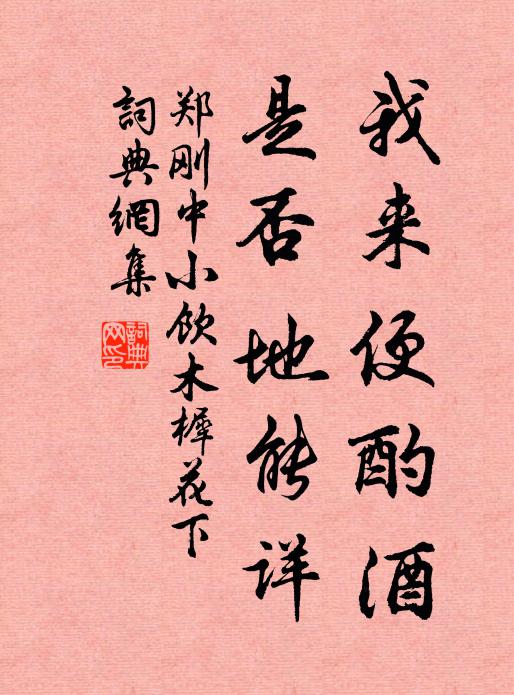 我来便酌酒
是否地能详
郑刚中小饮木樨花下
詞典網集
詞典网印